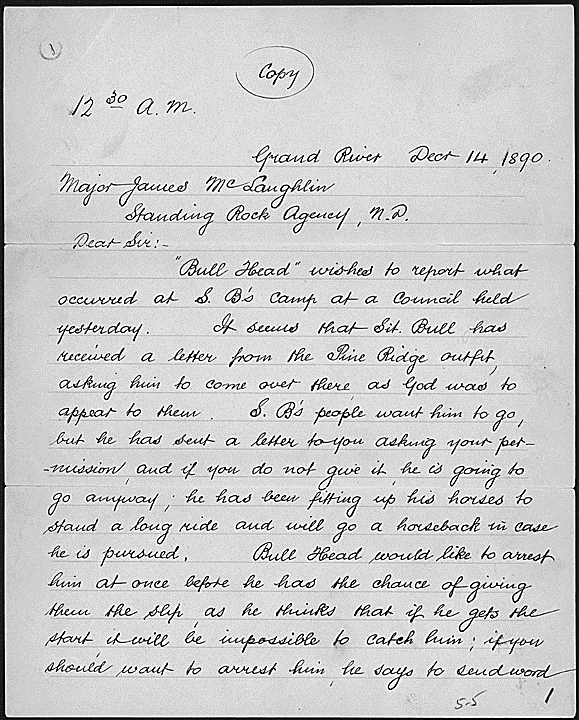 1
Copy
12 30 A.M.
Grand River Decr 14, 1890.
Major James McLaughlin
Standing Rock Agency, N.D.
Dear Sir:-
"Bull Head" wishes to report what
occurred at S. B's camp at a council held
yesterday. It seems that Sit. Bull has
received a letter from the Pine Ridge outfit,
asking him to come over there as God was to
appear to them. S. B's people want him to go,
but he has sent a letter to you asking your per-
-mission, and if you do not give it, he is going to
go anyway; he has been fitting up his horses to
stand a long ride and will go a horseback in case
he is pursued. Bull Head would like to arrest
him at once before he has the chance of giving
them the slip, as he thinks that if he gets the
start it will be impossible to catch him; if you
should want to arrest him, he says to send word
5-5
1